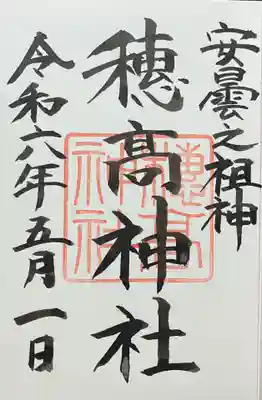 安曇之祖神
穂高神社
令和六年五月一日
穂高神社